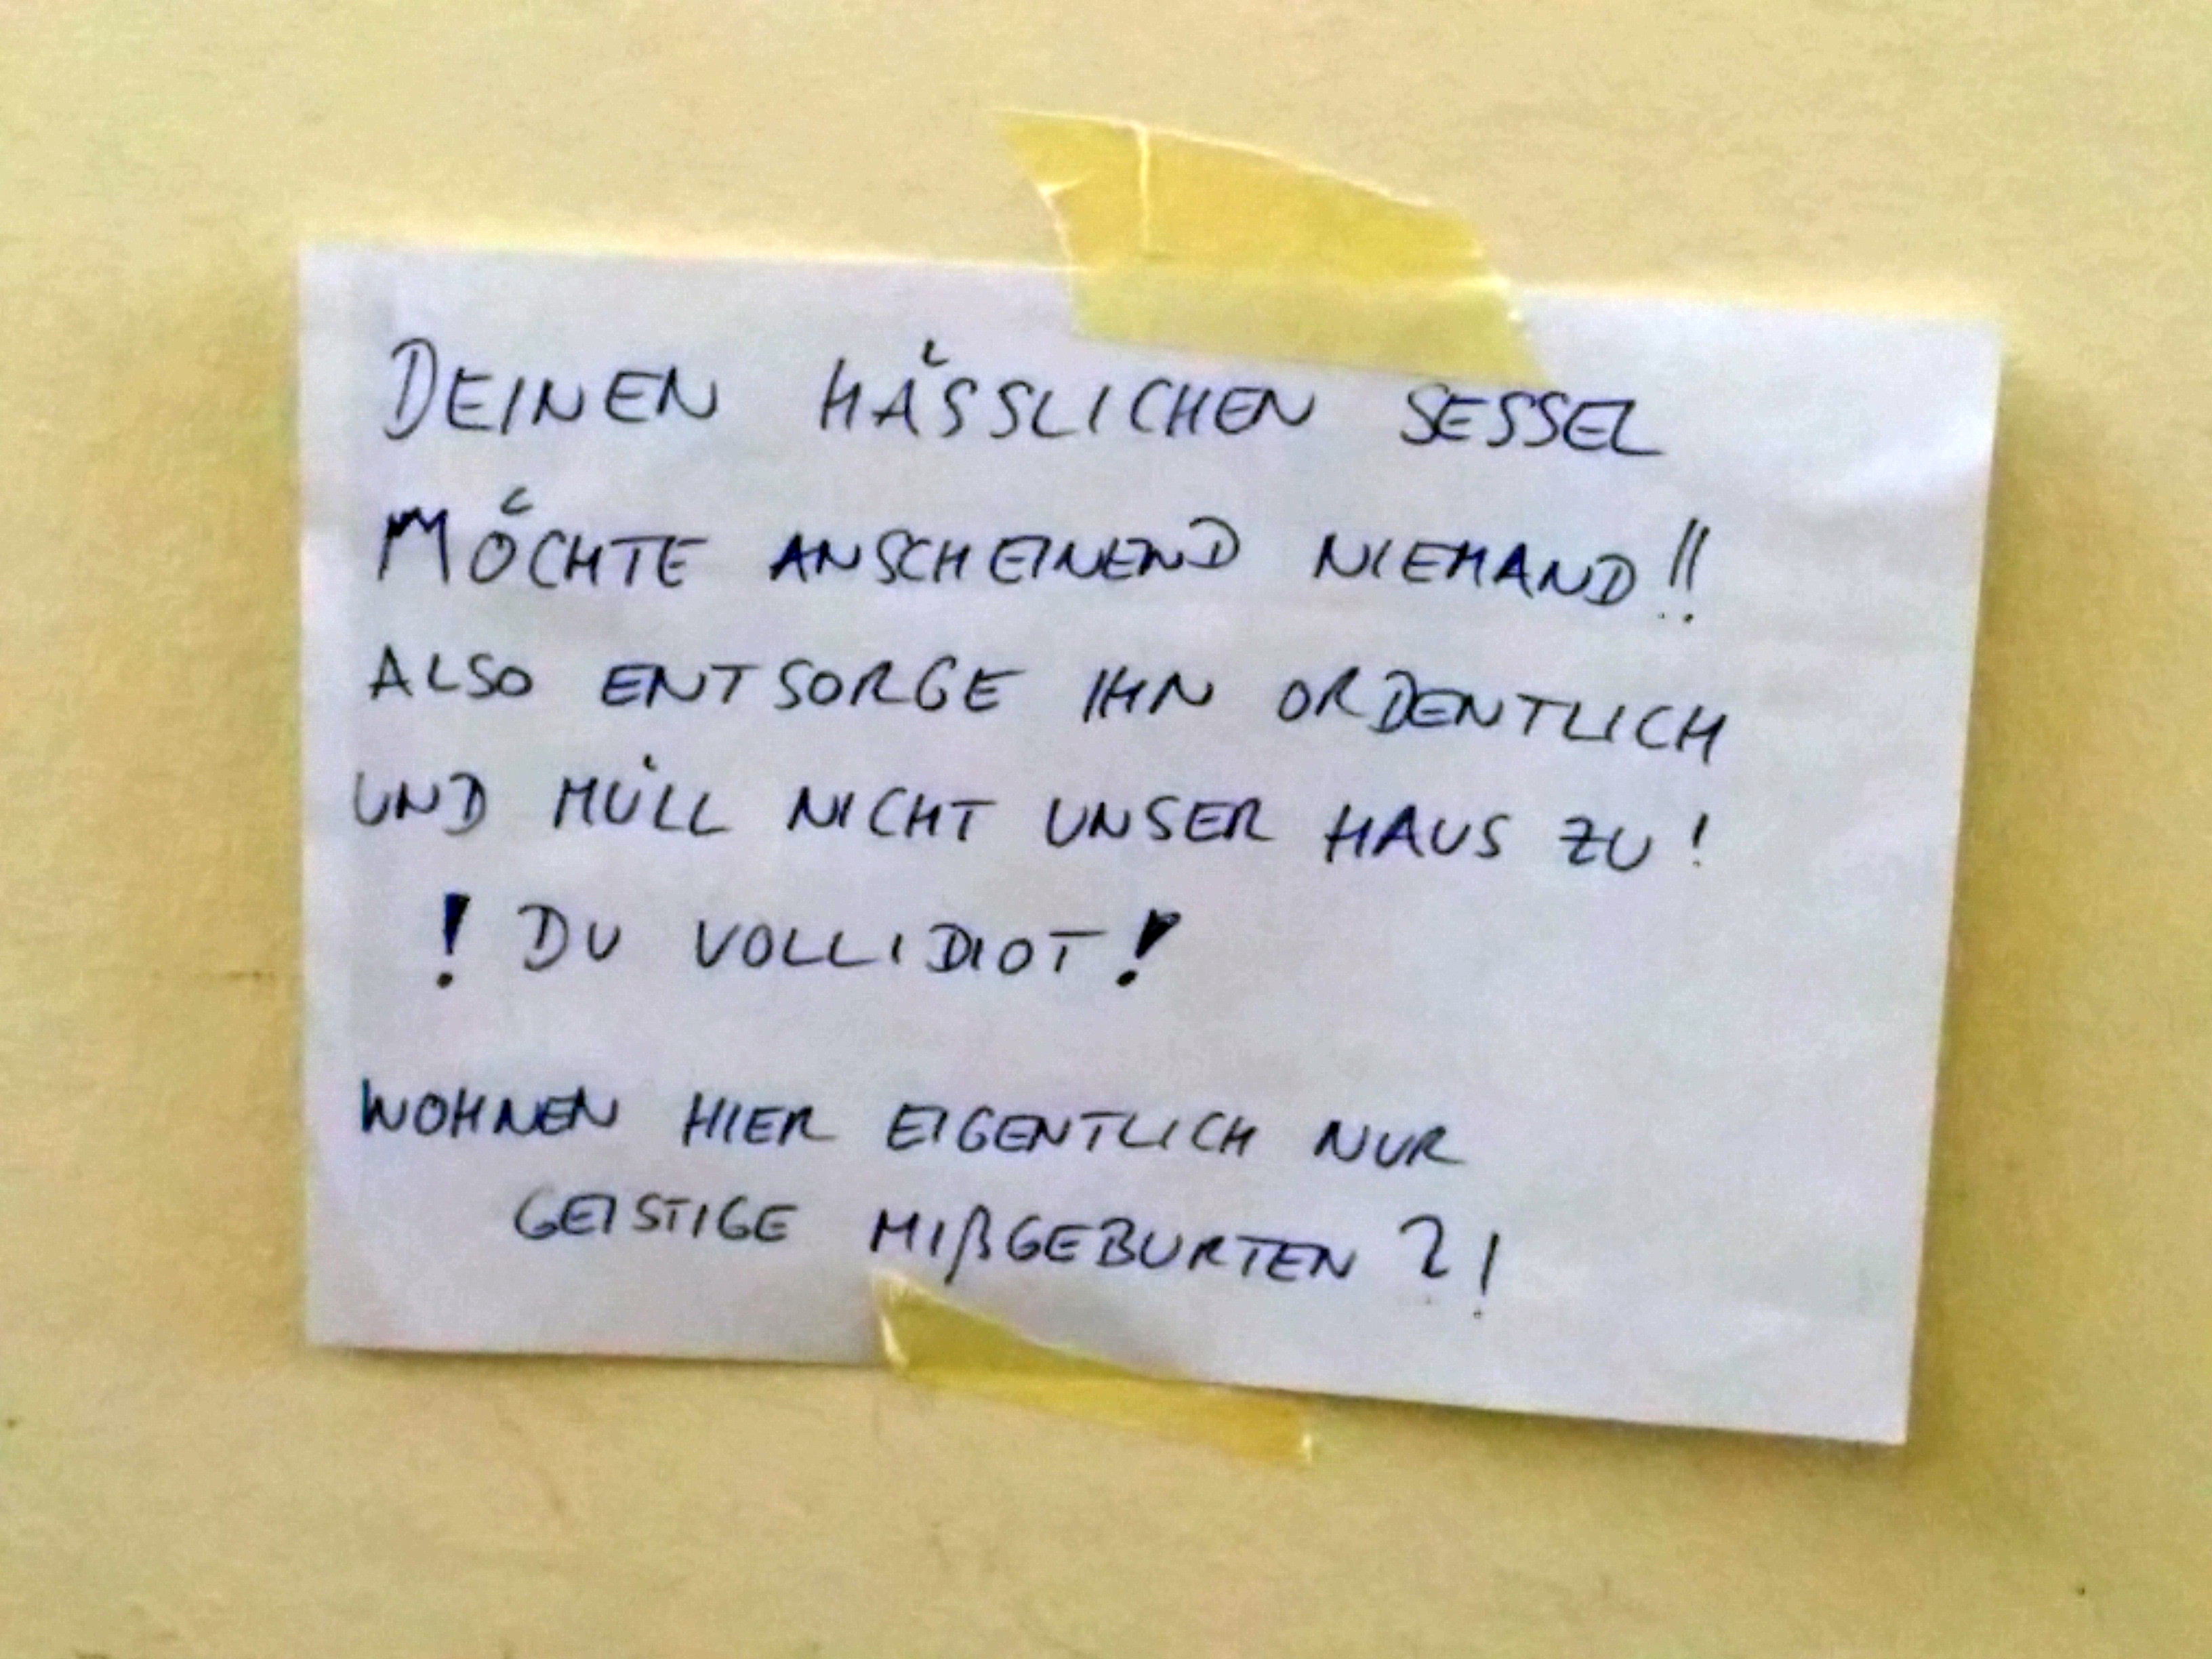 DEINEN HÄSSLICHEN SESSEL
MÖCHTE ANSCHEINEND NIEMAND!!
ALSO ENTSORGE IHN ORDENTLICH
UND MÜLL NICHT UNSER HAUS ZU!
! DU VOLLIDIOT!
WOHNEN HIER EIGENTLICH NUR
GEISTIGE MIßGEBURTEN?!